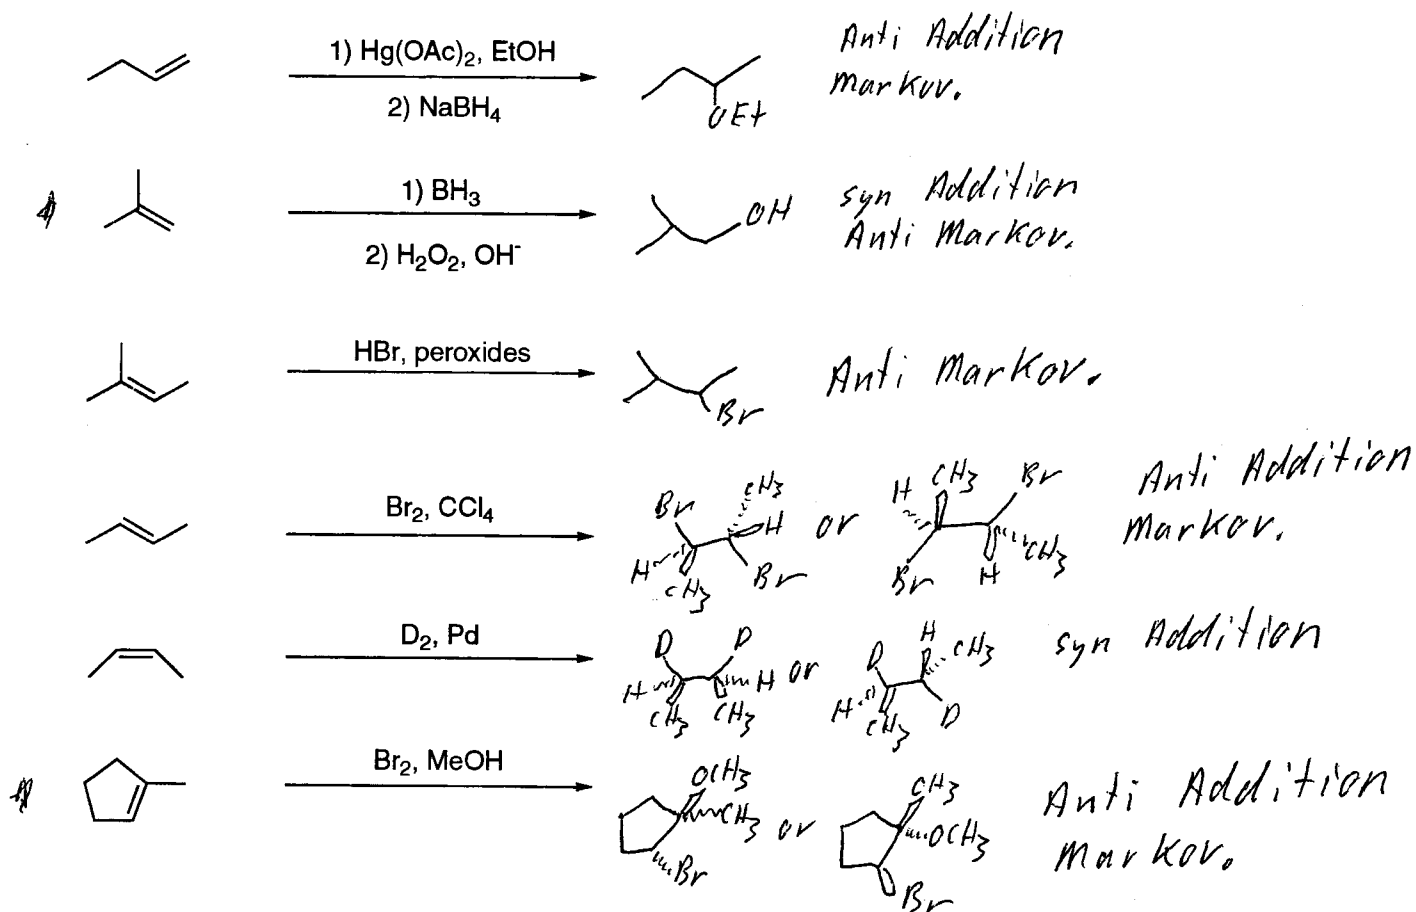 1) Hg(OAc)2, EtOH
2) NaBH4
OEt
Anti Addition
Markov.
1) BH3
2) H2O2, OH-
OH
syn Addition
Anti Markov.
HBr, peroxides
Br
Anti Markov.
Br2, CCl4
Br CH3 H H CH3 Br
or
H CH3 Br Br H CH3
Anti Addition
Markov.
D2, Pd
D D H H CH3 CH3
or
D H CH3 H CH3 D
syn Addition
Br2, MeOH
OCH3 CH3 Br
or
CH3 OCH3 Br
Anti Addition
Markov.